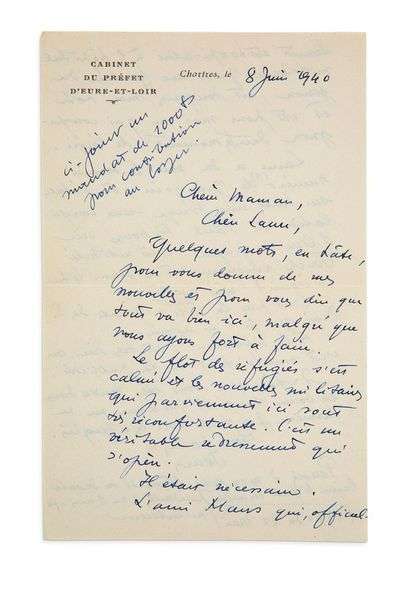 CABINET
DU PRÉFET
D'EURE-ET-LOIR
Chartres, le 8 Juin 1940
ci-joint un
mandat de 1000
pour contribution
au loyer.
Chère Maman,
Chère Laure,
Quelques mots, en hâte,
pour vous donner de mes
nouvelles et pour vous dire que
tout va bien ici, malgré que
nous ayons fort à faire.
Le flot de réfugiés s'est
calmé et les nouvelles militaires
qui parviennent ici sont
réconfortantes. C'est un
véritable redressement qui
s'opère.
Il était nécessaire.
L'ami Mans qui, officiel-